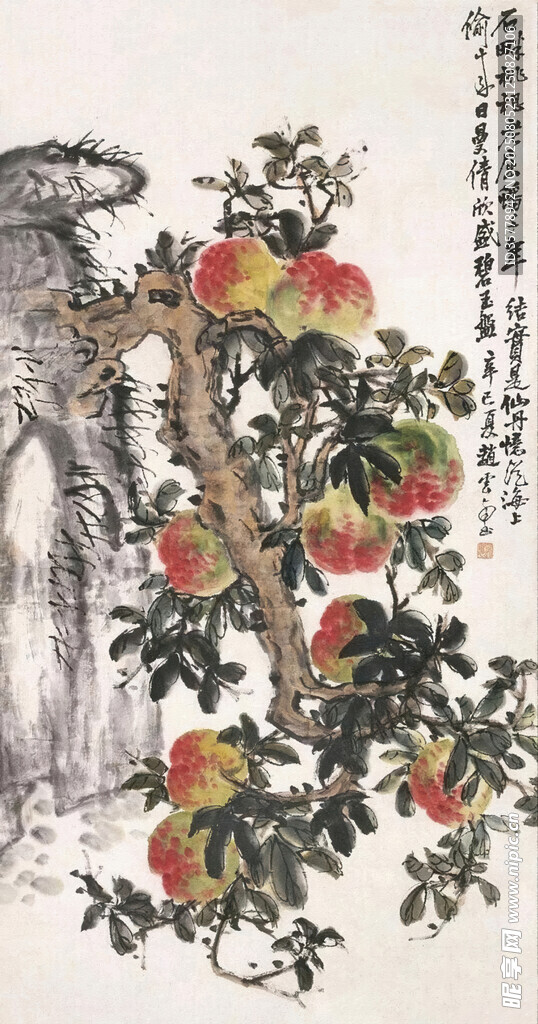 石畔桃穠
年結實是仙丹憶從海上
偷來日曼倩欣盛碧玉盤
辛巳夏趙雲壑
ID:35778942 NO:20250805231250827106
昵享网 www.nipic.cn